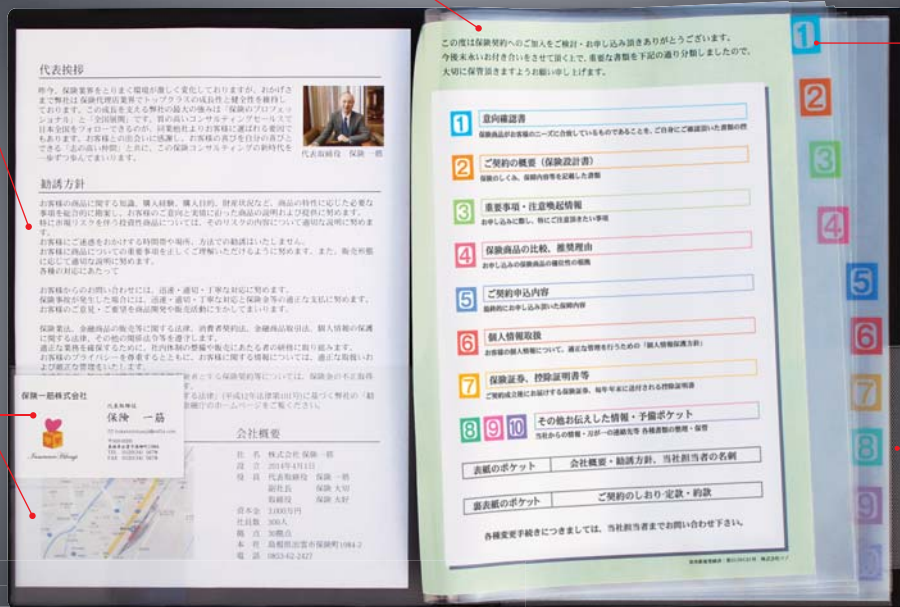 代表挨拶
昨今、保険業界をとりまく環境が激しく変化しておりますが、おかげさ
まで弊社は保険代理店業界でトップクラスの成長性と健全性を維持し
ております。この成長を支える弊社の最大の強みは「保険のプロフェッ
ショナル」と「全国展開」です。質の高いコンサルティングセールスで
日本全国をフォローできるのが、同業他社よりお客様に選ばれる要因で
もあります。お客様との出会いに感謝し、お客様の喜びを自分の喜びと
できる「志の高い仲間」と共に、この保険コンサルティングの新時代を
一歩ずつ歩んでまいります。
代表取締役 保険 一筋
勧誘方針
お客様の商品に関する知識、購入経験、購入目的、財産状況など、商品の特性に応じた必要な
事項を総合的に勘案し、お客様のご意向と実情に沿った商品の説明および提供に努めます。
特に市場リスクを伴う投資性商品については、そのリスクの内容について適切な説明に努めま
す。
お客様にご迷惑をおかけする時間帯や場所、方法での勧誘はいたしません。
お客様に商品についての重要事項を正しくご理解いただけるように努めます。また、販売形態
に応じて適切な説明に努めます。
各種の対応にあたって
お客様からのお問い合わせには、迅速・適切・丁寧な対応に努めます。
保険事故が発生した場合には、迅速・適切・丁寧な対応と保険金等の適正な支払に努めます。
お客様のご意見・ご要望を商品開発や販売活動に生かしてまいります。
保険業法、金融商品の販売等に関する法律、消費者契約法、金融商品取引法、個人情報の保護
に関する法律、その他の関係法令等を遵守します。
適正な業務を確保するために、社内体制の整備や販売にあたる者の研修に取り組みます。
お客様のプライバシーを尊重するとともに、お客様に関する情報については、適正な取扱いお
よび厳正な管理をいたします。
とする保険契約等については、保険金の不正取得
する法律」(平成12年法律第101号)に基づく弊社の「勧
金融庁のホームページをご覧ください。
保険一筋株式会社
代表取締役
保険 一筋
会社概要
社 名 株式会社 保険一筋
設 立 2014年4月1日
役 員 代表取締役 保険 一筋
副社長 保険 大切
取締役 保険 大好
資本金 3,000万円
社員数 300人
拠 点 30拠点
本 社 島根県出雲市保険町1084-2
電 話 0853-62-2427
この度は保険契約へのご加入をご検討・お申し込み頂きありがとうございます。
今後末永いお付き合いをさせて頂く上で、重要な書類を下記の通り分類しましたので、
大切に保管頂きますようお願い申し上げます。
1 意向確認書
保険商品がお客様のニーズに合致しているものであることを、ご自身にご確認頂いた書類の控
2 ご契約の概要（保険設計書）
保険のしくみ、保障内容等を記載した書類
3 重要事項・注意喚起情報
お申し込みに際し、特にご注意頂きたい事項
4 保険商品の比較、推奨理由
お申し込みの保険商品の優位性の根拠
5 ご契約申込内容
最終的にお申し込み頂いた保障内容
6 個人情報取扱
お客様の個人情報について、適正な管理を行うための「個人情報保護方針」
7 保険証券、控除証明書等
ご契約成立後にお届けする保険証券、毎年年末に送付される控除証明書
8 9 10 その他お伝えした情報・予備ポケット
当社からの情報・万が一の連絡先等 各種書類の整理・保管
表紙のポケット 会社概要・勧誘方針、当社担当者の名刺
裏表紙のポケット ご契約のしおり・定款・約款
各種変更手続きにつきましては、当社担当者までお問い合わせ下さい。
1
2
3
4
5
6
7
8
9
10